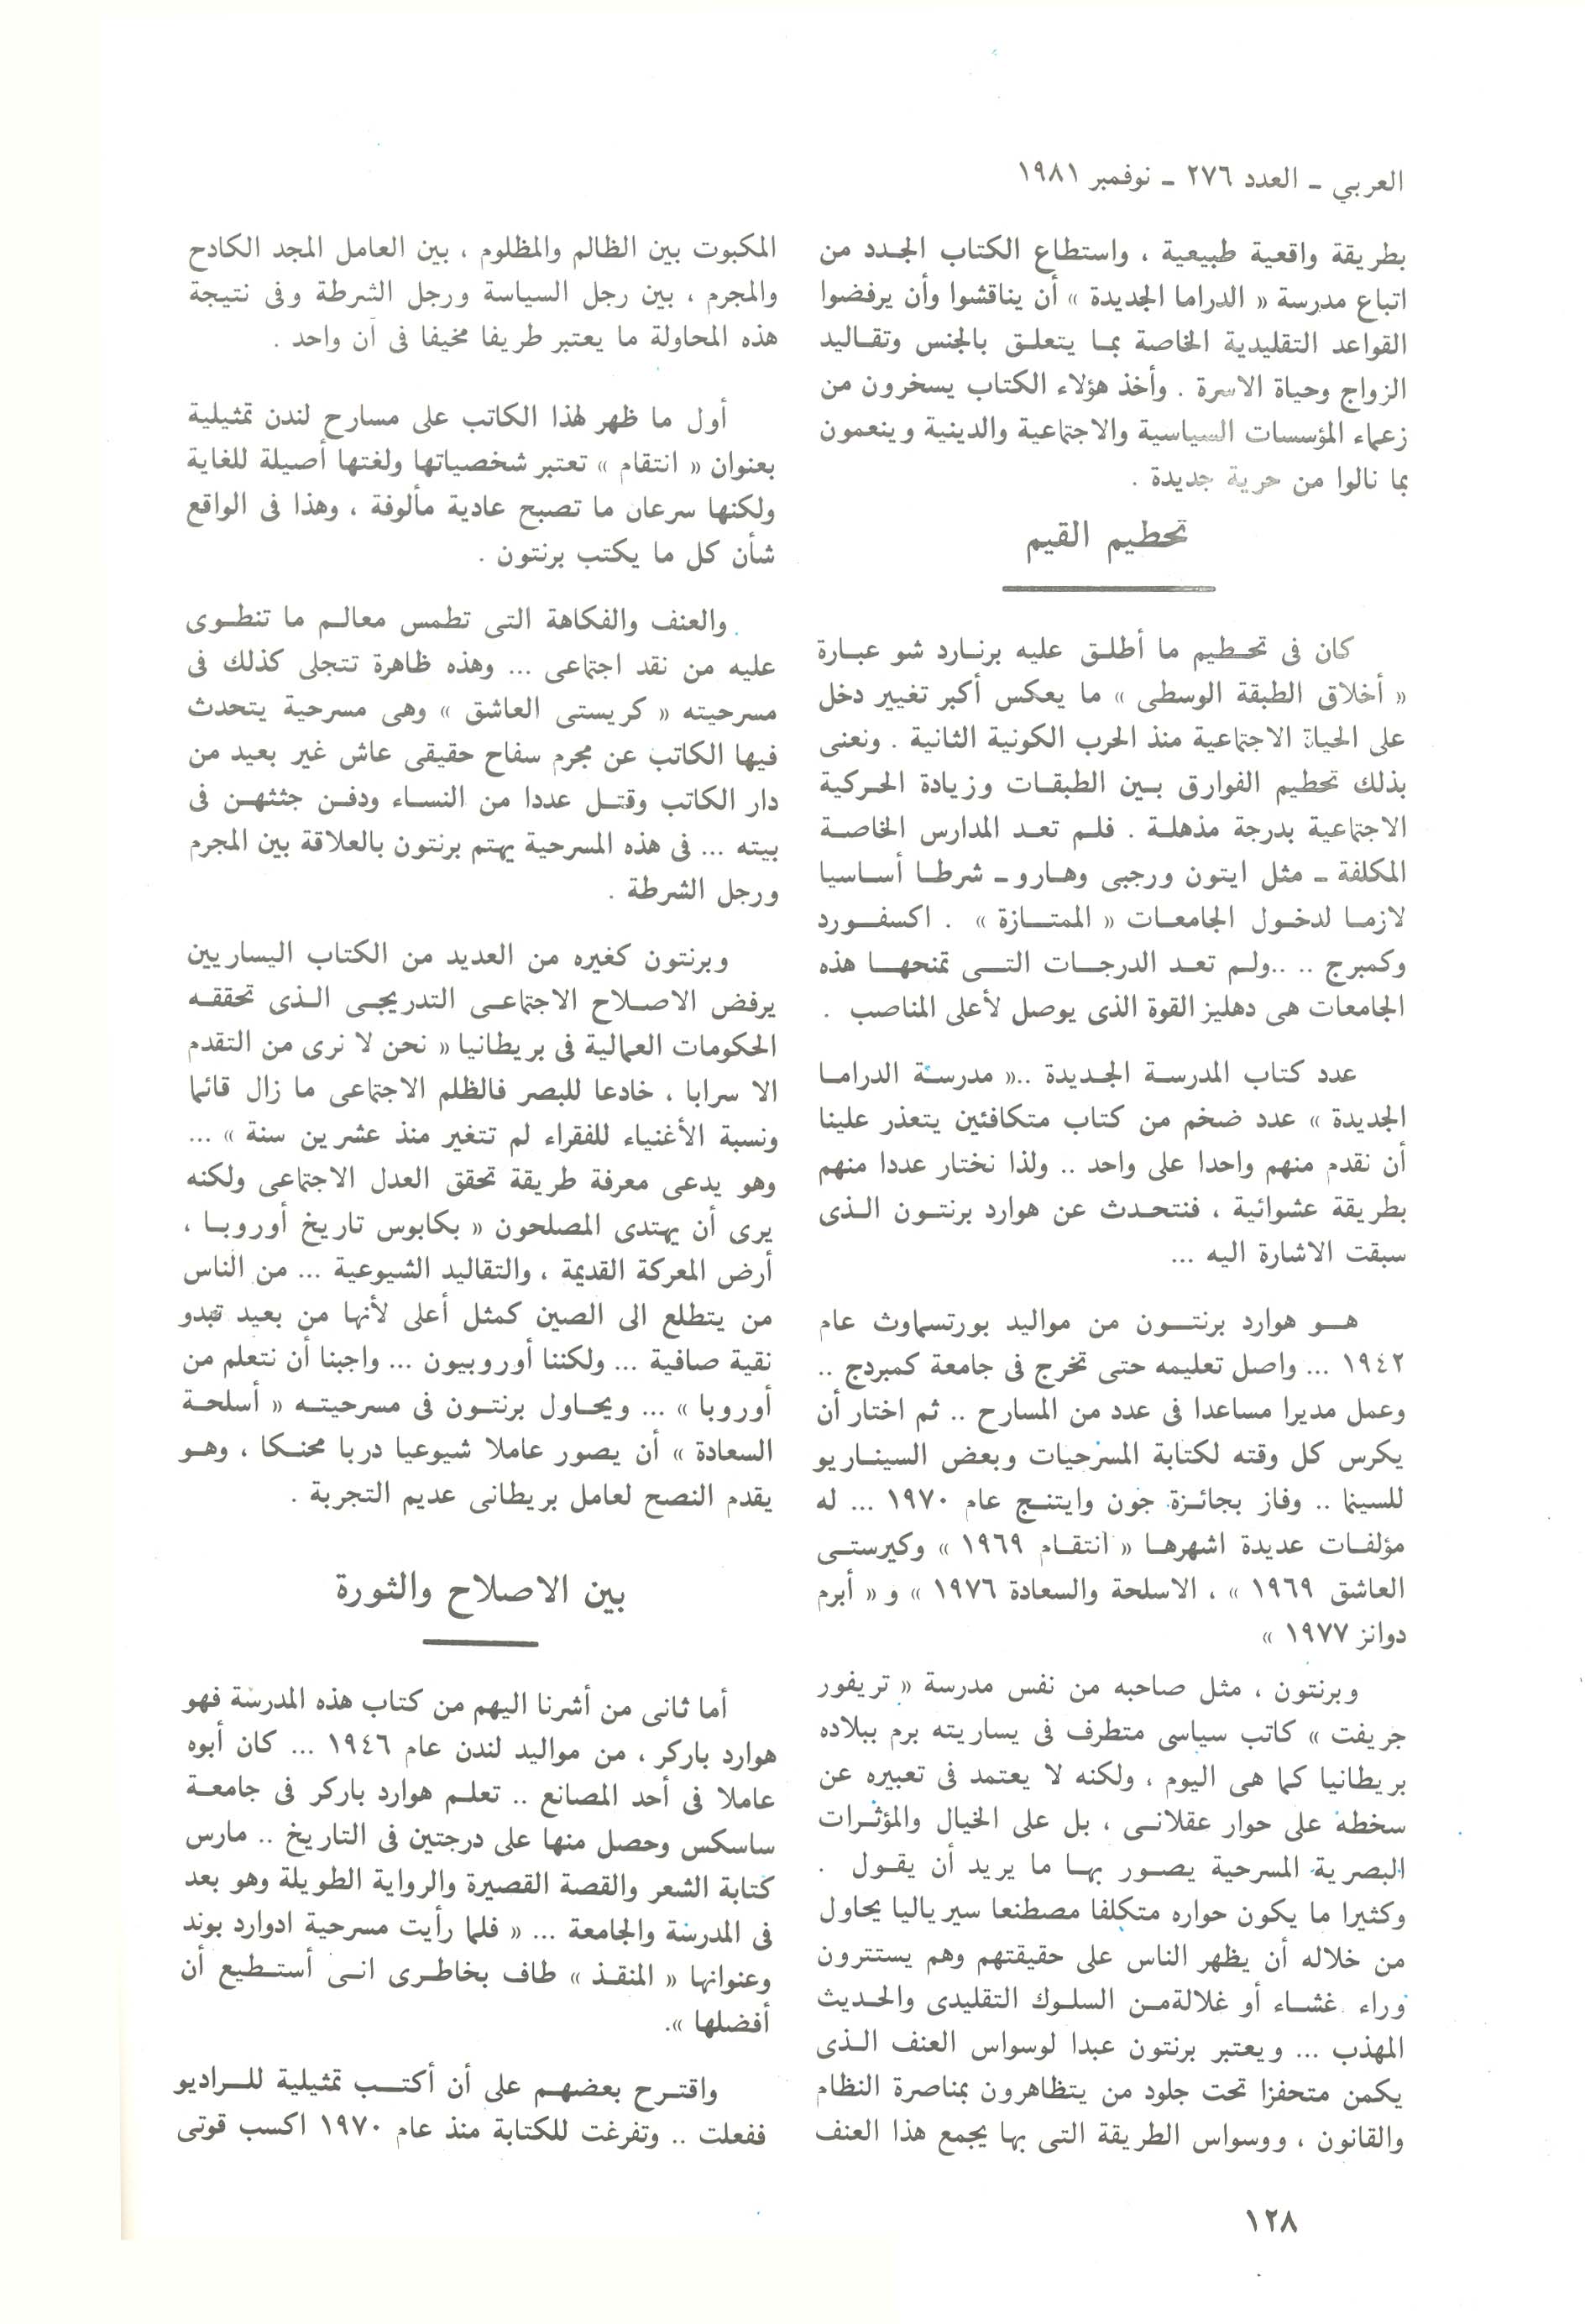 العربي ـ العدد ٢٧٦ ـ نوفمبر ١٩٨١
بطريقة واقعية طبيعية ، واستطاع الكتاب الجدد من
اتباع مدرسة « الدراما الجديدة » أن يناقشوا وأن يرفضوا
القواعد التقليدية الخاصة بما يتعلق بالجنس وتقاليد
الزواج وحياة الاسرة . وأخذ هؤلاء الكتاب يسخرون من
زعماء المؤسسات السياسية والاجتماعية والدينية وينعمون
بما نالوا من حرية جديدة .
تحطيم القيم
كان فى تحطيم ما أطلق عليه برنارد شو عبارة
« أخلاق الطبقة الوسطى » ما يعكس أكبر تغيير دخل
على الحياة الاجتماعية منذ الحرب الكونية الثانية . ونعنى
بذلك تحطيم الفوارق بين الطبقات وزيادة الحركية
الاجتماعية بدرجة مذهلة . فلم تعد المدارس الخاصة
المكلفة ـ مثل ايتون ورجبى وهارو ـ شرطا أساسيا
لازما لدخول الجامعات « الممتازة » . اكسفورد
وكمبرج .. ..ولم تعد الدرجات التى تمنحها هذه
الجامعات هى دهليز القوة الذى يوصل لأعلى المناصب .
عدد كتاب المدرسة الجديدة ..« مدرسة الدراما
الجديدة » عدد ضخم من كتاب متكافئين يتعذر علينا
أن نقدم منهم واحدا على واحد .. ولذا نختار عددا منهم
بطريقة عشوائية ، فنتحدث عن هوارد برنتون الذى
سبقت الاشارة اليه ...
هو هوارد برنتون من مواليد بورتسماوث عام
١٩٤٢ ... واصل تعليمه حتى تخرج فى جامعة كمبردج ..
وعمل مديرا مساعدا فى عدد من المسارح .. ثم اختار أن
يكرس كل وقته لكتابة المسرحيات وبعض السيناريو
للسينما .. وفاز بجائزة جون وايتنج عام ١٩٧٠ ... له
مؤلفات عديدة اشهرها « انتقام ١٩٦٩ » وكيرستى
العاشق ١٩٦٩ » ، الاسلحة والسعادة ١٩٧٦ » و « أبرم
دوانز ١٩٧٧ »
وبرنتون ، مثل صاحبه من نفس مدرسة « تريفور
جريفت » كاتب سياسى متطرف فى يساريته برم ببلاده
بريطانيا كما هى اليوم ، ولكنه لا يعتمد فى تعبيره عن
سخطه على حوار عقلانى ، بل على الخيال والمؤثرات
البصرية المسرحية يصور بها ما يريد أن يقول .
وكثيرا ما يكون حواره متكلفا مصطنعا سيرياليا يحاول
من خلاله أن يظهر الناس على حقيقتهم وهم يستترون
وراء غشاء أو غلالةمن السلوك التقليدى والحديث
المهذب ... ويعتبر برنتون عبدا لوسواس العنف الذى
يكمن متحفزا تحت جلود من يتظاهرون بمناصرة النظام
والقانون ، ووسواس الطريقة التى بها يجمع هذا العنف
المكبوت بين الظالم والمظلوم ، بين العامل المجد الكادح
والمجرم ، بين رجل السياسة ورجل الشرطة وفى نتيجة
هذه المحاولة ما يعتبر طريفا مخيفا فى آن واحد .
أول ما ظهر لهذا الكاتب على مسارح لندن تمثيلية
بعنوان « انتقام » تعتبر شخصياتها ولغتها أصيلة للغاية
ولكنها سرعان ما تصبح عادية مألوفة ، وهذا فى الواقع
شأن كل ما يكتب برنتون .
والعنف والفكاهة التى تطمس معالم ما تنطوى
عليه من نقد اجتماعى ... وهذه ظاهرة تتجلى كذلك فى
مسرحيته « كريستى العاشق » وهى مسرحية يتحدث
فيها الكاتب عن مجرم سفاح حقيقى عاش غير بعيد من
دار الكاتب وقتل عددا من النساء ودفن جثثهن فى
بيته ... فى هذه المسرحية يهتم برنتون بالعلاقة بين المجرم
ورجل الشرطة .
وبرنتون كغيره من العديد من الكتاب اليساريين
يرفض الاصلاح الاجتماعى التدريجى الذى تحققه
الحكومات العمالية فى بريطانيا « نحن لا نرى من التقدم
الا سرابا ، خادعا للبصر فالظلم الاجتماعى ما زال قائما
ونسبة الأغنياء للفقراء لم تتغير منذ عشرين سنة » ...
وهو يدعى معرفة طريقة تحقق العدل الاجتماعى ولكنه
يرى أن يهتدى المصلحون « بكابوس تاريخ أوروبا ،
أرض المعركة القديمة ، والتقاليد الشيوعية ... من الناس
من يتطلع الى الصين كمثل أعلى لأنها من بعيد تبدو
نقية صافية ... ولكننا أوروبيون ... واجبنا أن نتعلم من
أوروبا » ... ويحاول برنتون فى مسرحيته « أسلحة
السعادة » أن يصور عاملا شيوعيا دربا محنكا ، وهو
يقدم النصح لعامل بريطانى عديم التجربة .
بين الاصلاح والثورة
أما ثانى من أشرنا اليهم من كتاب هذه المدرسة فهو
هوارد باركر ، من مواليد لندن عام ١٩٤٦ ... كان أبوه
عاملا فى أحد المصانع .. تعلم هوارد باركر فى جامعة
ساسكس وحصل منها على درجتين فى التاريخ .. مارس
كتابة الشعر والقصة القصيرة والرواية الطويلة وهو بعد
فى المدرسة والجامعة ... « فلما رأيت مسرحية ادوارد بوند
وعنوانها « المنقذ » طاف بخاطرى انى أستطيع أن
أفضلها ».
واقترح بعضهم على أن أكتب تمثيلية للراديو
ففعلت .. وتفرغت للكتابة منذ عام ١٩٧٠ اكسب قوتى
١٢٨